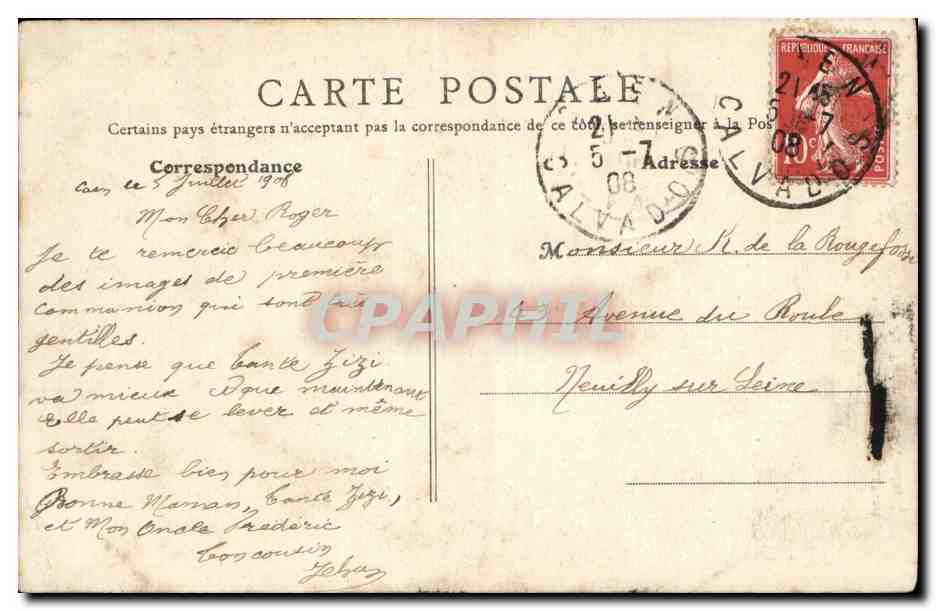 CARTE POSTALE
Certains pays étrangers n'acceptant pas la correspondance de ce côté, se renseigner à la Pos
Correspondance
Caen le 5 Juillet 1908
Mon Cher Roger
Je te remercie beaucoup
des images de première
communion qui sont
gentilles.
Je pense que Tante Zizi
va mieux et que maintenant
Elle peut se lever et même
sortir.
Embrasse bien pour moi
Bonne Maman, Tante Zizi,
et Mon Oncle Frédéric
Ton cousin
Jehan
Adresse
Monsieur R. de la Rougefosse
43 Avenue du Roule
Neuilly sur Seine
REPUBLIQUE FRANÇAISE
10c
POSTES
21
5 -7
08
CALVADOS
21 15
5 -7
08
CALVADOS
CPAPHIL